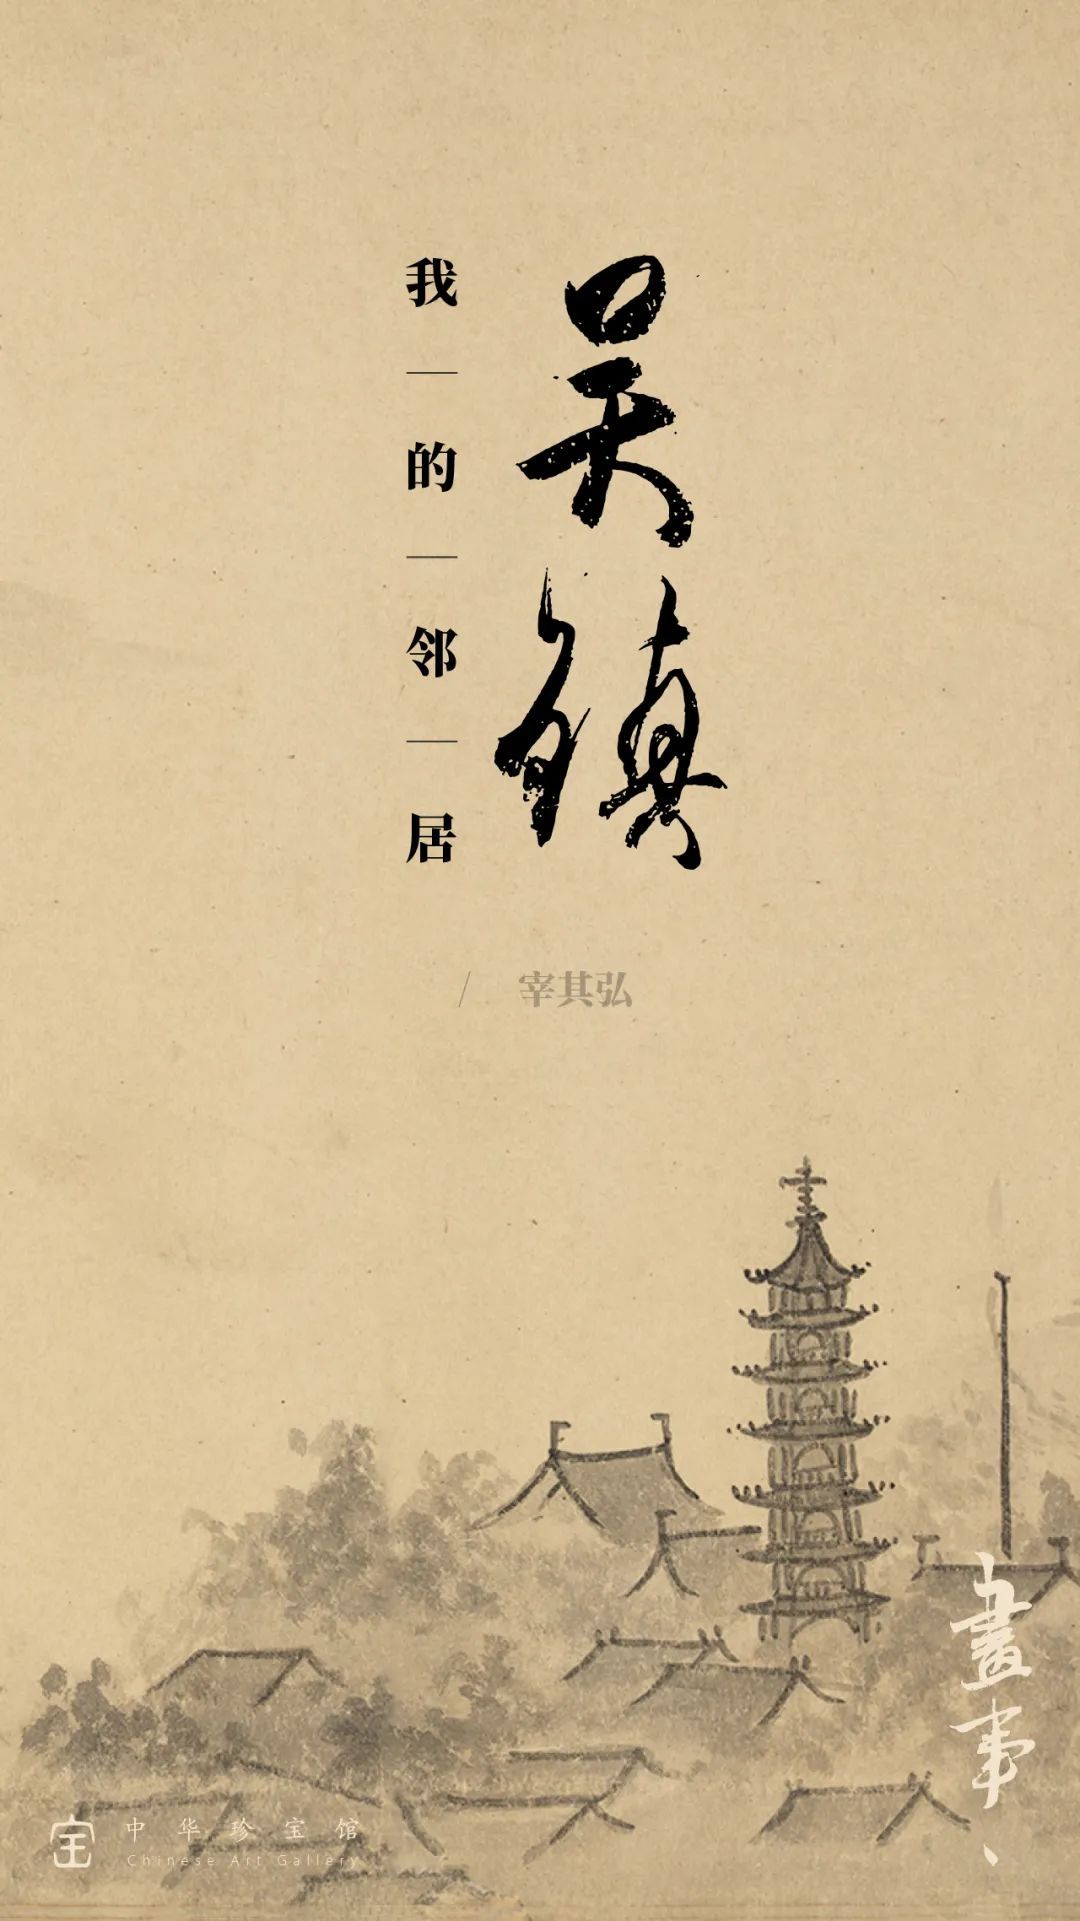 吴镇
我的邻居
/ 宰其弘
畫事、
中华珍宝馆
Chinese Art Gallery